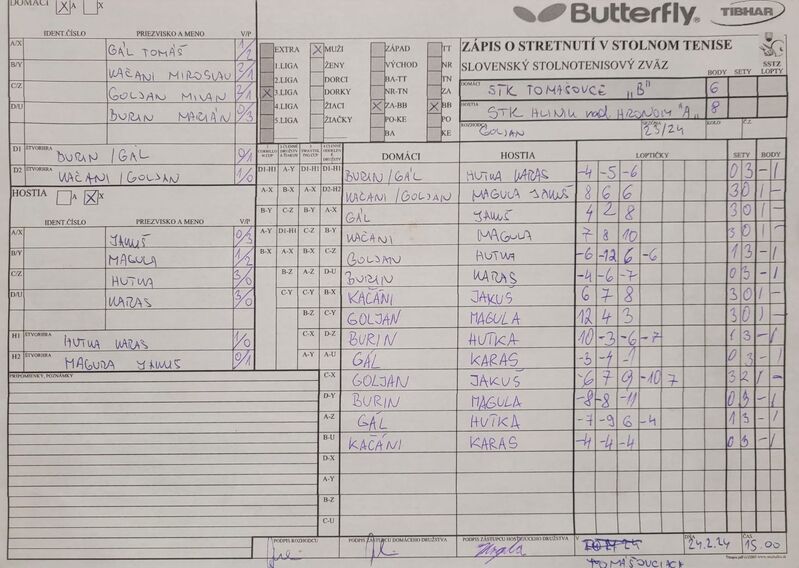 DOMÁCI X A X
Butterfly® TIBHAR
IDENT.ČÍSLO PRIEZVISKO A MENO V/P
A/X GÁL TOMÁŠ 1/2
B/Y KAČANI MIROSLAV 2/1
C/Z GOLJAN MILAN 2/1
D/U BURIN MARIÁN 0/3
D1 ŠTVORHRA BURIN /GÁL 0/1
D2 ŠTVORHRA KAČANI /GOLJAN 1/0
HOSTIA A X X
IDENT.ČÍSLO PRIEZVISKO A MENO V/P
A/X JAKUŠ 0/3
B/Y MAGULA 1/2
C/Z HUTKA 3/0
D/U KARAS 3/0
H1 ŠTVORHRA HUTKA KARAS 1/0
H2 ŠTVORHRA MAGULA JAKUŠ 0/1
PRIPOMIENKY, POZNÁMKY
EXTRA X MUŽI ZÁPAD TT
1.LIGA ŽENY VÝCHOD NR
2.LIGA DORCI BA-TT TN
X 3.LIGA DORKY NR-TN ZA
4.LIGA ŽIACI X ZA-BB X BB
5.LIGA ŽIAČKY PO-KE PO
BA KE
ZÁPIS O STRETNUTÍ V STOLNOM TENISE
SLOVENSKÝ STOLNOTENISOVÝ ZVÄZ
SSTZ
BODY SETY LOPTY
DOMÁCI STK TOMÁŠOVCE „B" 6
HOSTIA STK HLINIK nad HRONOM "A" 8
ROZHODCA GOLJAN SEZÓNA 23/24 KOLO Č.Z.
DOMÁCI HOSTIA LOPTIČKY SETY BODY
D1-H1 A-Y D1-H1 D1-H1 BURIN/GÁL HUTKA KARAS -4 -5 -6 0 3 - 1
A-X B-X A-X D2-H2 KAČANI /GOLJAN MAGULA JAKUŠ 8 6 6 3 0 1 -
B-Y C-Z B-Y A-X GÁL JAKUŠ 4 2 8 3 0 1 -
A-Y D1-H1 C-Z B-Y KAČANI MAGULA 7 8 10 3 0 1 -
B-X A-X B-X C-Z GOLJAN HUTKA -6 -12 6 -6 1 3 - 1
B-Z A-Z D-U BURIN KARAS -4 -6 -7 0 3 - 1
C-Y C-Y B-X KAČÁNI JAKUŠ 6 7 8 3 0 1 -
B-Z C-Y GOLJAN MAGULA 12 4 3 3 0 1 -
C-X D-Z BURIN HUTKA 10 -3 -6 -7 1 3 - 1
A-Y A-U GÁL KARAS -3 -4 -1 0 3 - 1
C-X GOLJAN JAKUŠ -6 7 9 -10 7 3 2 1 -
D-Y BURIN MAGULA -8 -8 -11 0 3 - 1
A-Z GÁL HUTKA -7 -9 6 -4 1 3 - 1
B-U KAČÁNI KARAS -4 -4 -4 0 3 - 1
D-X
A-Y
B-Z
C-U
PODPIS ROZHODCU PODPIS ZÁSTUPCU DOMÁCEHO DRUŽSTVA PODPIS ZÁSTUPCU HOSTÍ DRUŽSTVA V DŇA 24.2.24 ČAS 15.00
TOMÁŠOVCIACH